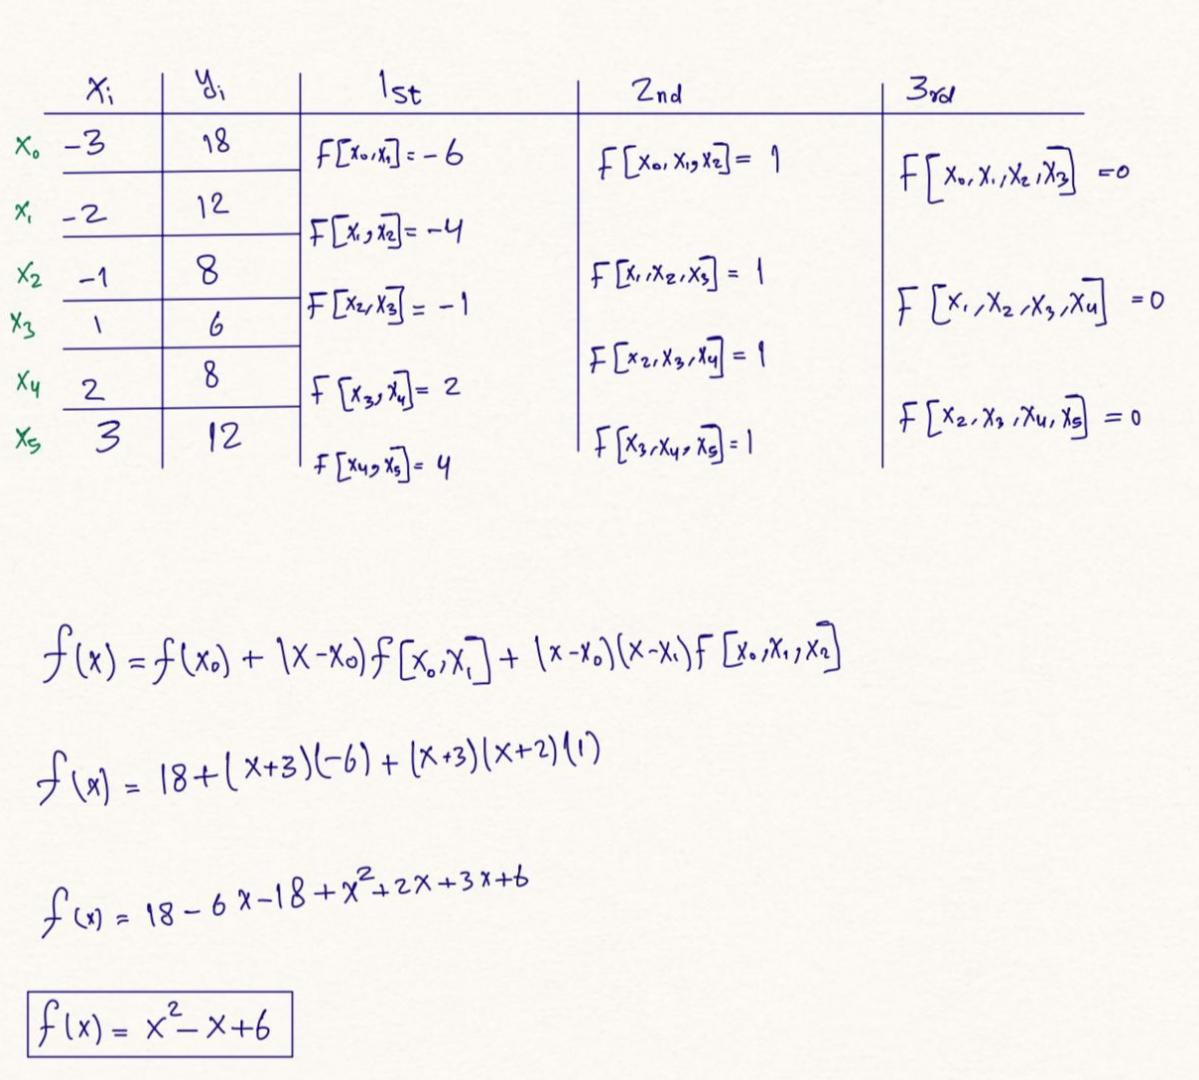 xᵢ yᵢ 1st 2nd 3rd
x₀ -3 18 F[x₀,x₁] = -6 F[x₀,x₁,x₂] = 1 F[x₀,x₁,x₂,x₃] = 0
x₁ -2 12 F[x₁,x₂] = -4
x₂ -1 8 F[x₂,x₃] = -1 F[x₁,x₂,x₃] = 1 F[x₁,x₂,x₃,x₄] = 0
x₃ 1 6 F[x₂,x₃,x₄] = 1
x₄ 2 8 F[x₃,x₄] = 2 F[x₂,x₃,x₄,x₅] = 0
x₅ 3 12 F[x₄,x₅] = 4 F[x₃,x₄,x₅] = 1
f(x) = f(x₀) + (x-x₀)f[x₀,x₁] + (x-x₀)(x-x₁)F[x₀,x₁,x₂]
f(x) = 18+(x+3)(-6) + (x+3)(x+2)(1)
f(x) = 18-6x-18+x²+2x+3x+6
f(x) = x²-x+6